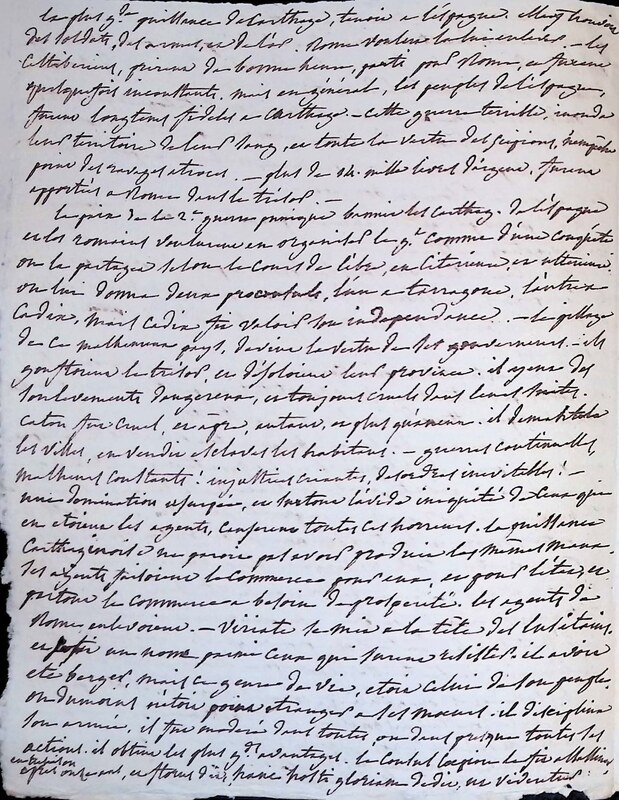 la plus gde puissance de Carthage, tenoit a l'espagne. elle y trouvoit
des soldats, des armes, et de l'or. Rome voulut la lui enlever. – les
Celtiberiens, prirent de bonne heure, parti pour Rome, et furent
quelquefois inconstants. mais en général, les peuples de l'espagne,
furent longtems fideles a Carthage. – cette guerre terrible, inonda
leur territoire de leur sang, et toute la vertu des scipions, n'empêcha
point des ravages atroces. – plus de 14. mille livres d'argent, furent
apportés a Rome dans le trésor. –
la paix de la 2e guerre punique bannit les Carthag. de l'espagne
et les romains voulurent en organiser le gt comme d'une conquête
on la partagea selon le cours de l'ebre, en citerieure, et ulterieure,
on lui donna deux proconsuls, l'un a tarragone, l'autre a
Cadix, mais Cadix fit valoir son independance. – le pillage
de ce malheureux pays, devint la vertu de ses gouverneurs. – ils
gonflerent le trésor, et désolerent leur province. il y eut des
soulevements dangereux, et toujours cruels dans leurs suites.
caton fut cruel, et apre, autant, et plus qu'aucun. il démantela
les villes, en vendit esclaves les habitans. – guerres continuelles,
malheurs constants! injustices criantes, desordres inevitables! –
une domination usurpée, et surtout l'avide iniquité de ceux qui
en etoient les agents, causerent toutes ces horreurs. la puissance
Carthaginoise ne paroit pas avoir produit les mêmes maux.
ses agents faisoient le commerce pour eux, et pour l'état, et
partout le commerce a besoin de prosperité. les agents de
Rome enlevoient. – Viriate se mit a la tête des lusitains,
et un nom parmi ceux qui furent rebelles. il avoit
eté berger, mais ce genre de vie, etoit celui de son peuple.
ou du moins n'etoit point etranger a ses mœurs. il disciplina
son armée, il fut modéré dans toutes, ou dans presque toutes les
actions. il obtint les plus gds avantages. le Consul Cæpion le fit assassiner
en trahison
après onze ans, et florus dit, hanc hosti gloriam dedit, ut videretur